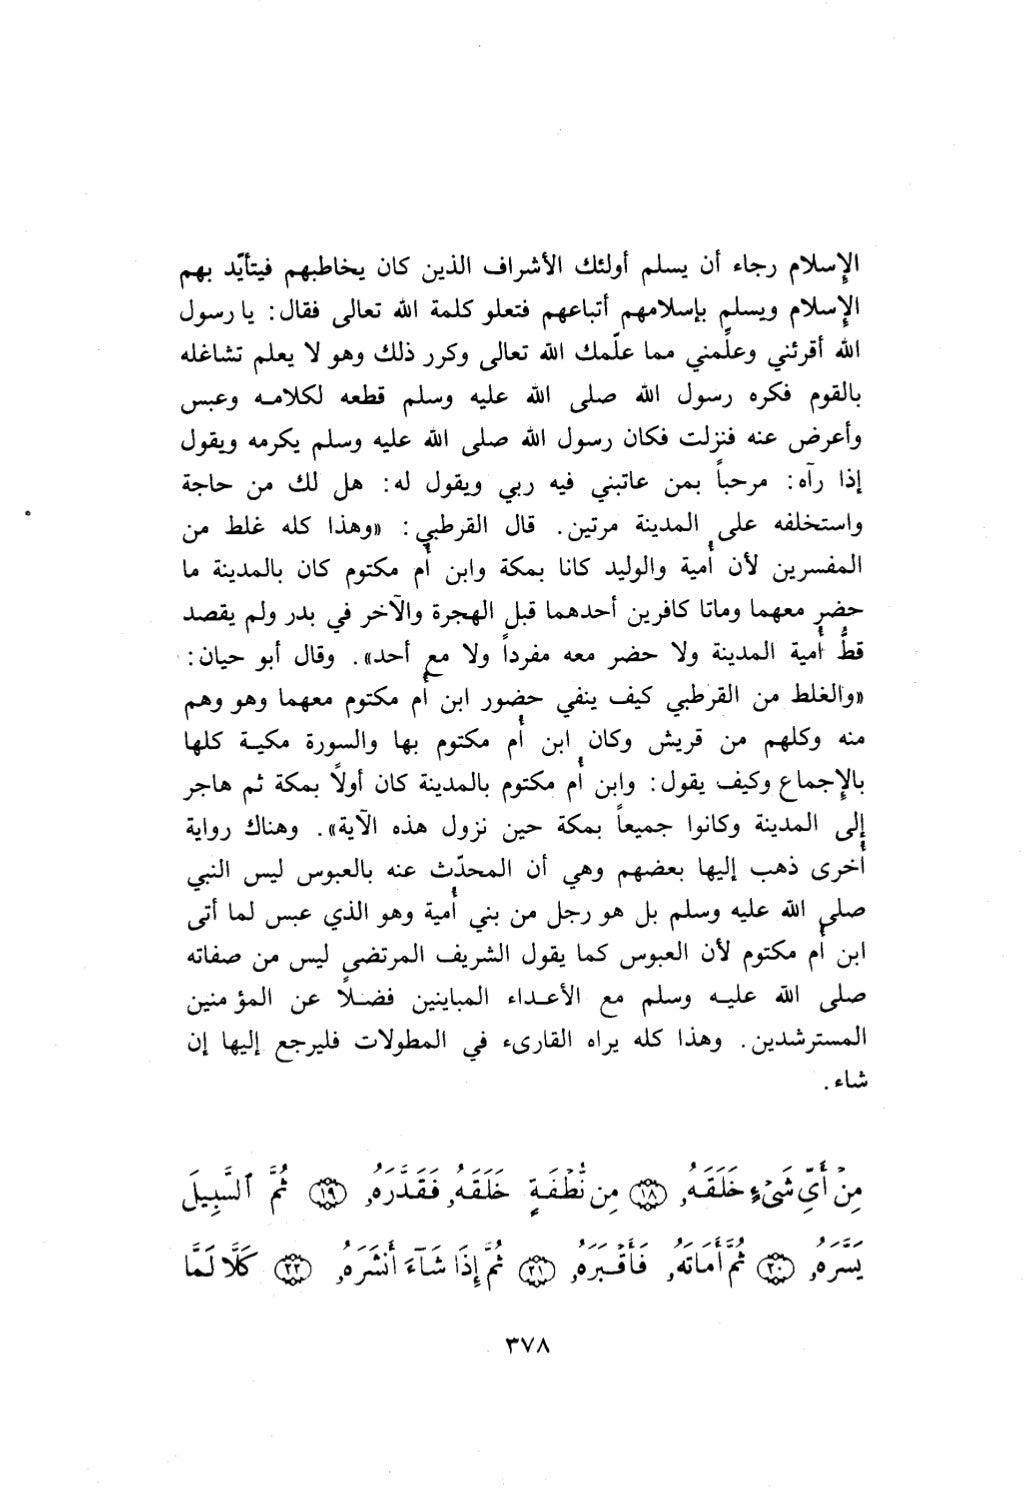 الإسلام رجاء أن يسلم أولئك الأشراف الذين كان يخاطبهم فيتأيّد بهم
الإسلام ويسلم بإسلامهم أتباعهم فتعلو كلمة الله تعالى فقال: يا رسول
الله أقرئني وعلّمني مما علّمك الله تعالى وكرر ذلك وهو لا يعلم تشاغله
بالقوم فكره رسول الله صلى الله عليه وسلم قطعه لكلامه وعبس
وأعرض عنه فنزلت فكان رسول الله صلى الله عليه وسلم يكرمه ويقول
إذا رآه: مرحباً بمن عاتبني فيه ربي ويقول له: هل لك من حاجة
واستخلفه على المدينة مرتين. قال القرطبي: «وهذا كله غلط من
المفسرين لأن أُمية والوليد كانا بمكة وابن أُم مكتوم كان بالمدينة ما
حضر معهما وماتا كافرين أحدهما قبل الهجرة والآخر في بدر ولم يقصد
قطُّ أُمية المدينة ولا حضر معه مفرداً ولا مع أحد». وقال أبو حيان:
«والغلط من القرطبي كيف ينفي حضور ابن أُم مكتوم معهما وهو وهم
منه وكلهم من قريش وكان ابن أُم مكتوم بها والسورة مكية كلها
بالإجماع وكيف يقول: وابن أُم مكتوم بالمدينة كان أولاً بمكة ثم هاجر
إلى المدينة وكانوا جميعاً بمكة حين نزول هذه الآية». وهناك رواية
أُخرى ذهب إليها بعضهم وهي أن المحدّث عنه بالعبوس ليس النبي
صلى الله عليه وسلم بل هو رجل من بني أُمية وهو الذي عبس لما أتى
ابن أُم مكتوم لأن العبوس كما يقول الشريف المرتضى ليس من صفاته
صلى الله عليه وسلم مع الأعداء المباينين فضلاً عن المؤمنين
المسترشدين. وهذا كله يراه القارىء في المطولات فليرجع إليها إن
شاء.
مِنْ أَيِّ شَىْءٍ خَلَقَهُۥ ﴿١٨﴾ مِن نُّطْفَةٍ خَلَقَهُۥ فَقَدَّرَهُۥ ﴿١٩﴾ ثُمَّ ٱلسَّبِيلَ
يَسَّرَهُۥ ﴿٢٠﴾ ثُمَّ أَمَاتَهُۥ فَأَقْبَرَهُۥ ﴿٢١﴾ ثُمَّ إِذَا شَآءَ أَنشَرَهُۥ ﴿٢٢﴾ كَلَّا لَمَّا
٣٧٨